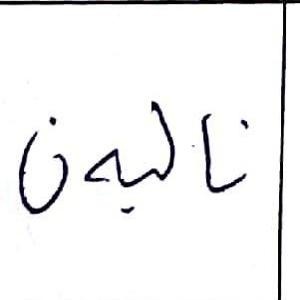 نالیەن